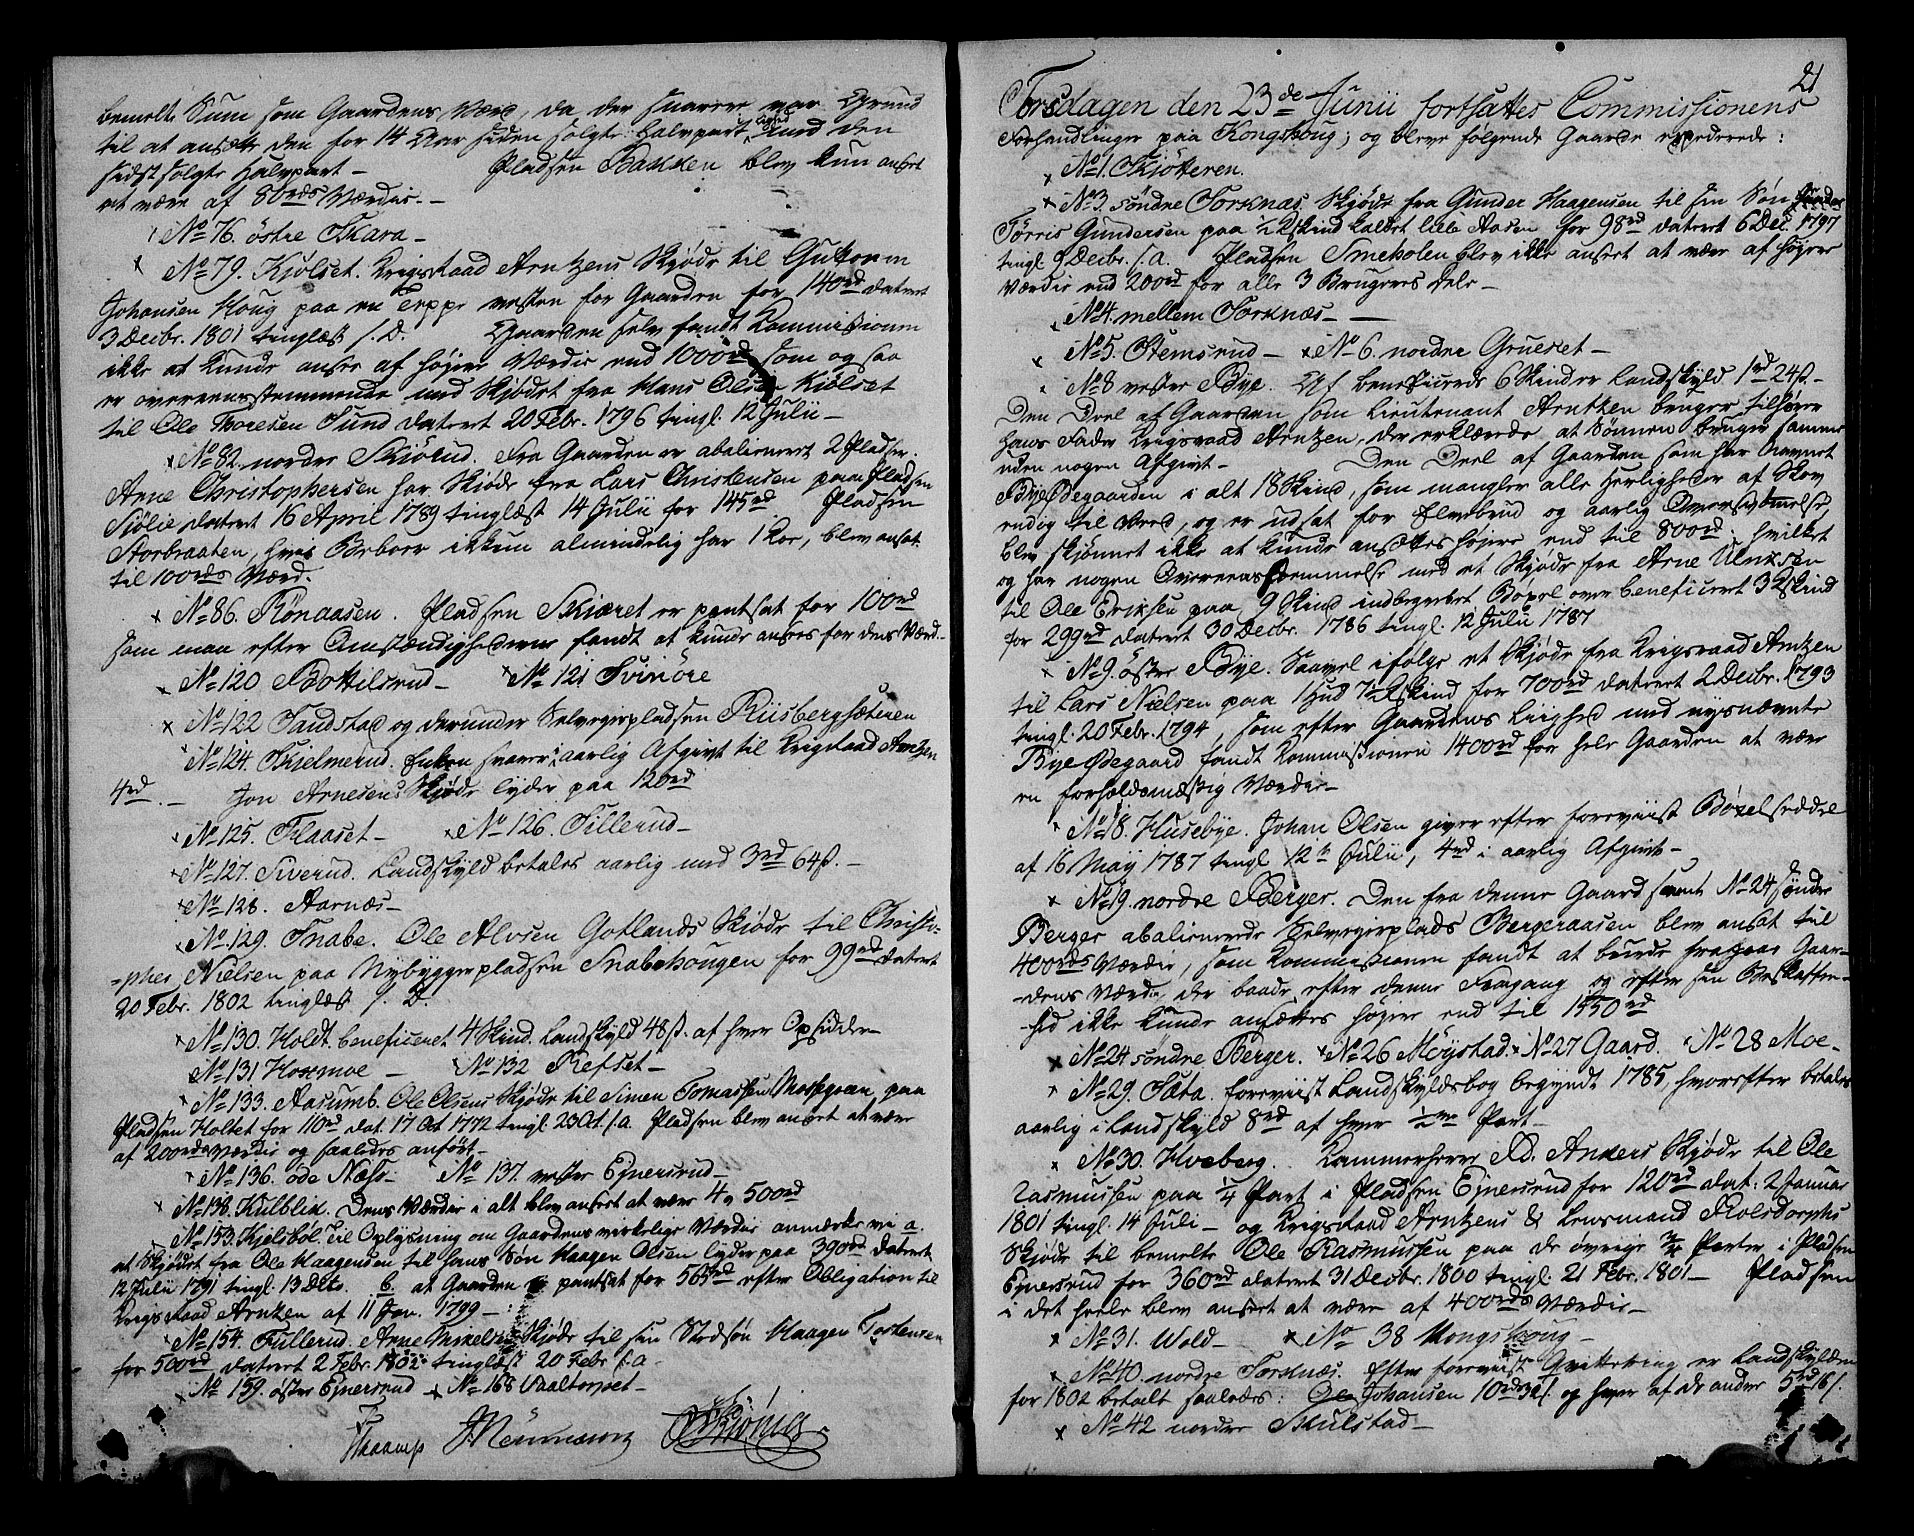 bemelte Sum som Gaardens Værd, da der snarere var Grund
til at ansætte den for 14 Aar siden solgte Halvpart lige med den
sidst solgte Halvpart – Pladsen Bakken blev kun anseet
at være af 80rds Værdie. –
No 76. østre Skara –
No 79. Kjølset. Krigsraad Arntzens Skjøde til Guttorm
Johansen Houg paa en Teppe vesten for Gaarden for 140rd dateret
3 Decbr. 1801 tinglæst s. D. Gaarden selv fandt Kommissionen
ikke at kunde ansee af højere Værdie end 1000rd som og saa
er overeensstemmende med Skjødet fra Hans Olsen Kiølset
til Ole Thoresen Sund dateret 20 Febr. 1796 tingl. 12 Julii –
No 82. nordre Skiørud. Fra Gaarden er abalieneret 2 Pladse.
Arne Christophersen har Skjøde fra Lars Christensen paa Pladsen
Siølie dateret 16 April 1789 tinglæst 14 Julii for 145rd Pladsen
Storbraaten, hvis Beboer ikkun almindelig har 1 Koe, blev ansat
til 100rds Værd.
No 86. Rønaasen. Pladsen Skiæret er pantsat for 100rd
som man efter Omstændighederne fandt at kunde ansees for dens Værd. –
No 120 Bottilsrud – No 121 Svinöre
No 122 Sandstad og derunder Selveierpladsen Riisbergsæteren
No 124. Skjelmerud. Enken svarer i aarlig Afgivt til Krigsraad Arntzen
4rd. – Jon Arnesens Skjøde lyder paa 120rd
No 125. Flaaset – No 126. Tillerud –
No 127. Siverud. Landskyld betales aarlig med 3rd 64ß. –
No 128. Aarnæs –
No 129. Snabe. Ole Alvsen Gotlands Skjøde til Christo-
-pher Nielsen paa Nybyggerpladsen Snabehougen for 99rd dateret
20 Febr. 1802 tinglæst s. D.
No 130. Holdt. beneficeret 4 Skind. Landskyld 48ß. af hver Opsidder –
No 131 Hoxmoe – No 132 Refset –
No 133. Aasumb. Ole Olsens Skjøde til Simen Tomassen Mosegran, paa
Pladsen Holtet for 110rd dat. 17 Oct 1772 tingl. 23 Oct. s.a. Pladsen blev anseet at være
af 200rds Værdie og saaledes anført –
No 136. øde Næss – No 137. vestre Ejnersrud –
No 138. Kulblik. Dens Værdie i alt blev anseet at være 4, 500rd
No 153. Kjelsbøl. Til Oplysning om Gaardens virkelige Værdie anmærke vi a.
at Skjødet fra Ole Haagensen til hans Søn Haagen Olsen lyder paa 390rd dateret
12 Julii 1791 tingl. 13 Dito. b. at Gaarden er pantsat for 565rd efter Obligation til
Krigsraad Arntzen af 11 Jan. 1799 –
No 154. Fullerud. Arne Mikelsens Skjøde til sin Stedsøn Haagen Torstensen
for 500rd dateret 2 Febr. 1802 tinglæst 20 Febr. s.a. –
No 159. østre Ejnersrud No 168 Vaaltorpet –
Haarup JNeumann König

21
Torsdagen den 23de Junii fortsattes Commissionens
Forhandlinger paa Kongsboug; og bleve følgende Gaarde expederede:
No 1. Skjøtteren.
No 3. søndre Torknæs. Skjøde fra Gunder Haagensen til sin Søn
Tørris Gundersen paa ½ Skind kaldet lille Aasen for 98rd dateret 6 Dec. 1797
tingl. 9 Decbr. s.a. Pladsen Smeholen blev ikke anseet at være af højere
Værdie end 200rd for alle 3 Brugeres Dele –
No 4. mellem Torknæs –
No 5. Stemsrud – No 6. nordre Grueset –
No 8 vestre Bye. Af beneficerede 6 Skind er Landskyld 1rd 24ß. –
Den Deel af Gaarden som Lieutenant Arntzen bruger tilhører
hans Fader Krigsraad Arntzen, der erklærede at Sønnen bruger samme
uden nogen Afgivt – Den Deel af Gaarden som har Navnet
Bye Ødegaarden i alt 18 Skind, som mangler alle Herligheder af Skov
endog til Brænd, og er udsat for Elvebrud og aarlig Oversvømmelse,
blev skjønnet ikke at kunde ansættes højere end til 800rd hvilket
og har nogen Overeensstemmelse med et Skjøde fra Arne
til Ole Eriksen paa 9 Skind indbegrebet Bøxel over beneficeret 3 Skind
for 299rd dateret 30 Decbr. 1786 tingl. 12 Julii 1787
No 9. østre Bye. Saavel ifølge et Skjøde fra Krigsraad Arntzen
til Lars Nielsen paa 1 Hud 7½ Skind for 700rd dateret 2 Decbr. 1793
tingl. 20 Febr. 1794, som efter Gaardens Liighed med nysnævnte
Bye Ødegaard fandt Kommissionen 1400rd for hele Gaarden at være
en forholdsmæssig Værdie –
No 18. Husebye. Johan Olsen giver efter foreviist Bøxelseddel
af 16 May 1787 tingl 12te Julii, 4rd i aarlig Afgivt –
No 19. nordre Berger. Den fra denne Gaard samt No 24 søndre
Berger abalienerede Selveierplads Bergeraasen blev ansat til
400rds Værdie, som Kommissionen fandt at burde fragaae Gaar-
-dens Værdie, der baade efter denne Fragang og efter sin Beskaffen-
-hed ikke kunde ansættes højere end til 1550rd
No 24 søndre Berger. No 26 Møystad. No 27 Gaard. No 28 Moe –
No 29. Sæta. foreviist Landskyldsbog begyndt 1785, hvorefter betales
aarlig i Landskyld 8rd af hver ½ve Part –
No 30. Hveberg. Kammerherre P. Ankers Skjøde til Ole
Rasmussen paa ¼ Part i Pladsen Ejnersrud for 120rd dat: 2 Januar
1801 tingl. 14 Juli – og Krigsraad Arntzens & Lensmand Rolsdorphs
Skjøde til bemelte Ole Rasmussen paa de øvrige ¾ Parter i Pladsen
Ejnersrud for 360rd dateret 31 Decbr. 1800 tingl. 21 Febr. 1801 – Pladsen
i det heele blev anseet at være af 400rds Værdie –
No 31. Wold – No 38 Kongshoug –
No 40. nordre Torknæs. Efter foreviist Qvittering er Landskylden
for 1802 betalt saaledes: Ole Johansen 10rd 32ß. og hver af de andre 5rd 16ß.
No 42 nordre Skulstad –